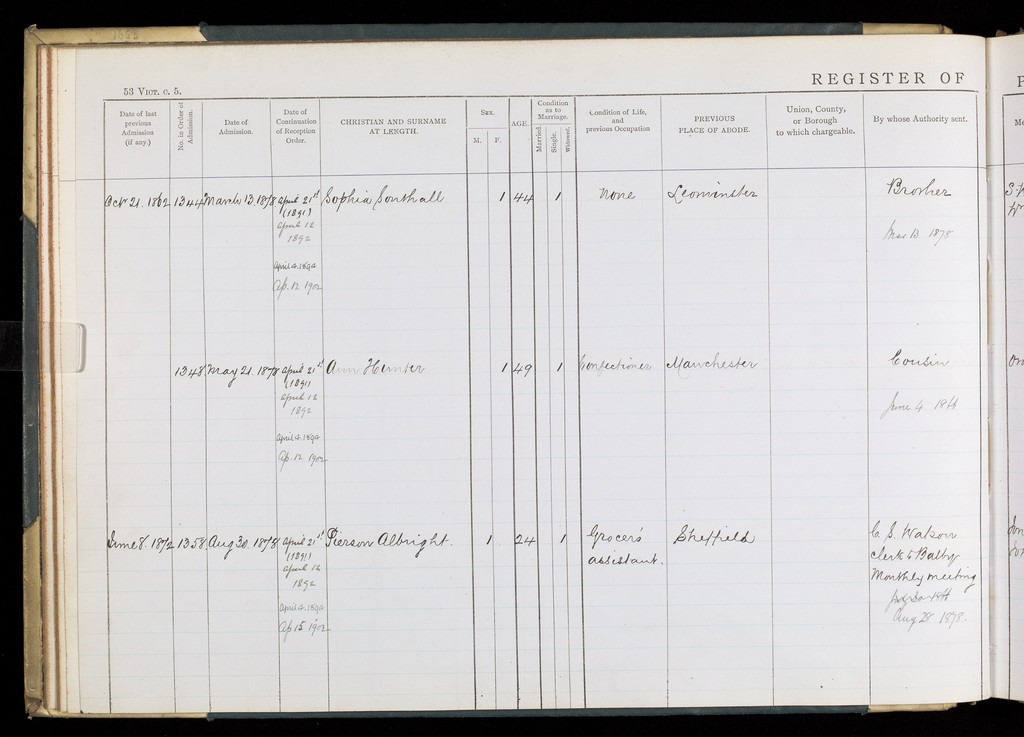 53 VICT. c. 5.
REGISTER OF
Date of last previous Admission (if any.)
No. in Order of Admission.
Date of Admission.
Date of Continuation of Reception Order.
CHRISTIAN AND SURNAME AT LENGTH.
SEX.
M. F.
AGE.
Condition as to Marriage.
Married. Single. Widowed.
Condition of Life, and previous Occupation
PREVIOUS PLACE OF ABODE.
Union, County, or Borough to which chargeable.
By whose Authority sent.
Oct 21. 1862 1344 March 13. 1878 April 21st Sophia Southall 1 44 1 None Leominster Brother
(1891)
April 12
1892
Mar. 13 1878
April 4. 1894
Ap. 12 1902
1348 May 21. 1878 April 21st Ann Hunter 1 49 1 Confectioner Manchester Cousin
(1891)
April 12
1892
June 4
April 4. 1894
Ap. 12 1902
June 8. 1872 1358 Aug 30. 1878 April 21st Pierson Albright. 1 24 1 Grocer's Sheffield C. S. Watson
(1891) assistant. Clerk to Balby
April 12
1892
Monthly meeting
April 4. 1894
Ap 15 1902
Aug 28 1878.